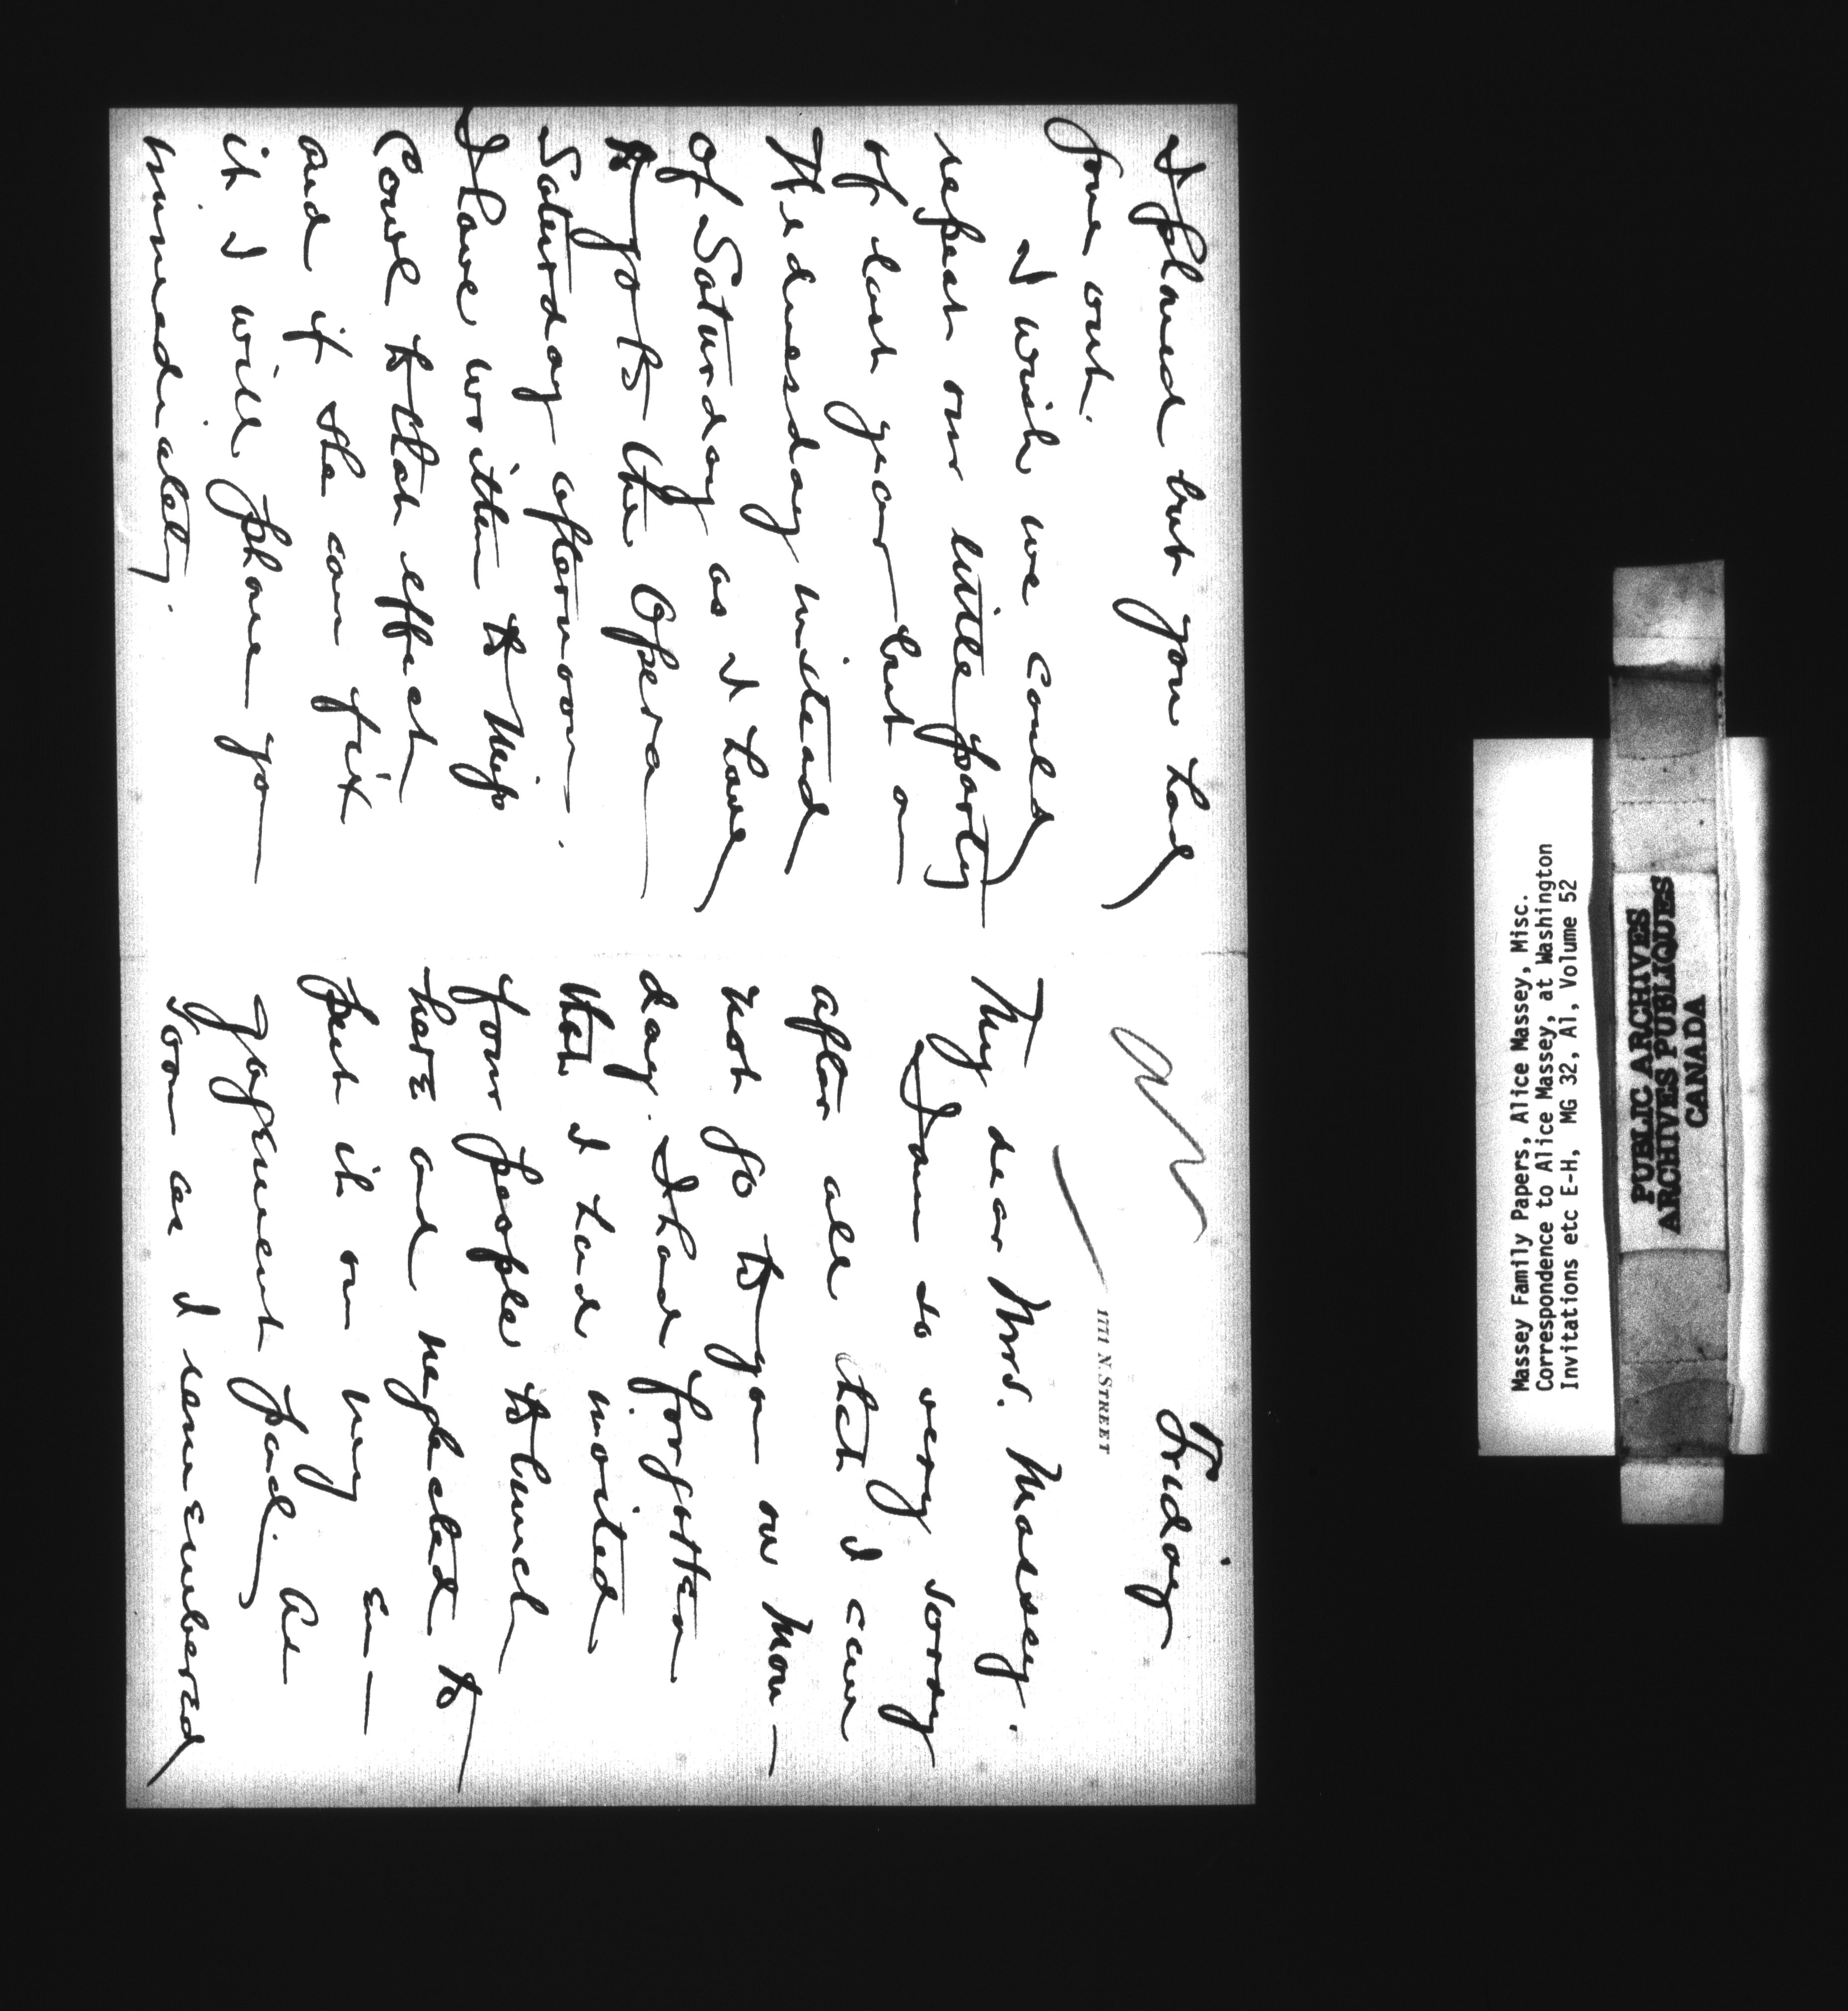 Friday
1771 N. STREET
My dear Mrs. Massey.
I am so very sorry
after all that I can
not go to you on Mon-
day. I had forgotten
that I had invited
four people to lunch
here and neglected to
put it on my en-
gagement pad. As
soon as I remembered
I phoned but you had
gone out.
I wish we could
repeat our little party
of last year but on
Wednesday instead
of Saturday as I have
to go to the Opera
Saturday afternoon.
I have written to Miss
Cowl to that effect
and if she can fix
it I will phone you
immediately.
Massey Family Papers, Alice Massey, Misc.
Correspondence to Alice Massey, at Washington
Invitations etc E-H, MG 32, A1, Volume 52
PUBLIC ARCHIVES
ARCHIVES PUBLIQUES
CANADA